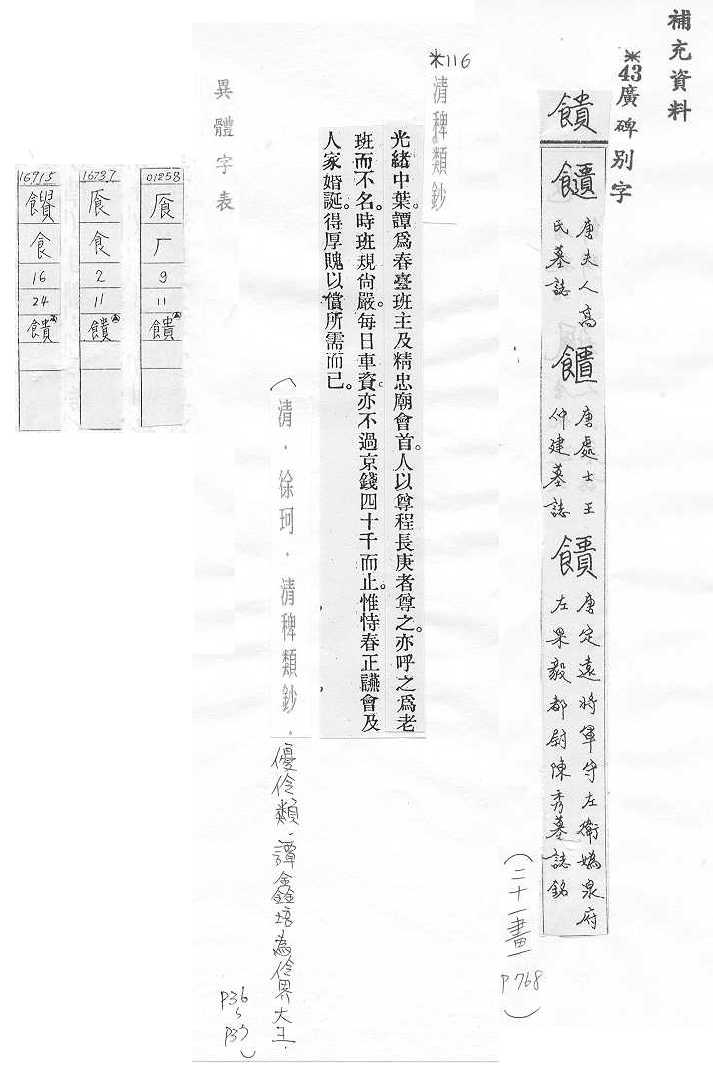 補充資料
*43廣碑別字
饋
唐夫人高
氏墓誌
唐處士王
仲建墓誌
唐定遠將軍守左衛嬀泉府
左果毅都尉陳秀墓誌銘
(二十一畫 P768)
*116
清稗類鈔
光緒中葉。譚為春臺班主及精忠廟會首。人以尊程長庚者尊之。亦呼之為老
班而不名。時班規尙嚴。每日車資。亦不過京錢四十千而止。惟恃春正讌會及
人家婚誕。得厚賙以償所需而已。
(清.徐珂.清稗類鈔.優伶類.譚鑫培為伶界大王.
P36
P37)
異體字表
01258
厂
9
11
饋
16737
食
2
11
饋
16715
食
16
24
饋